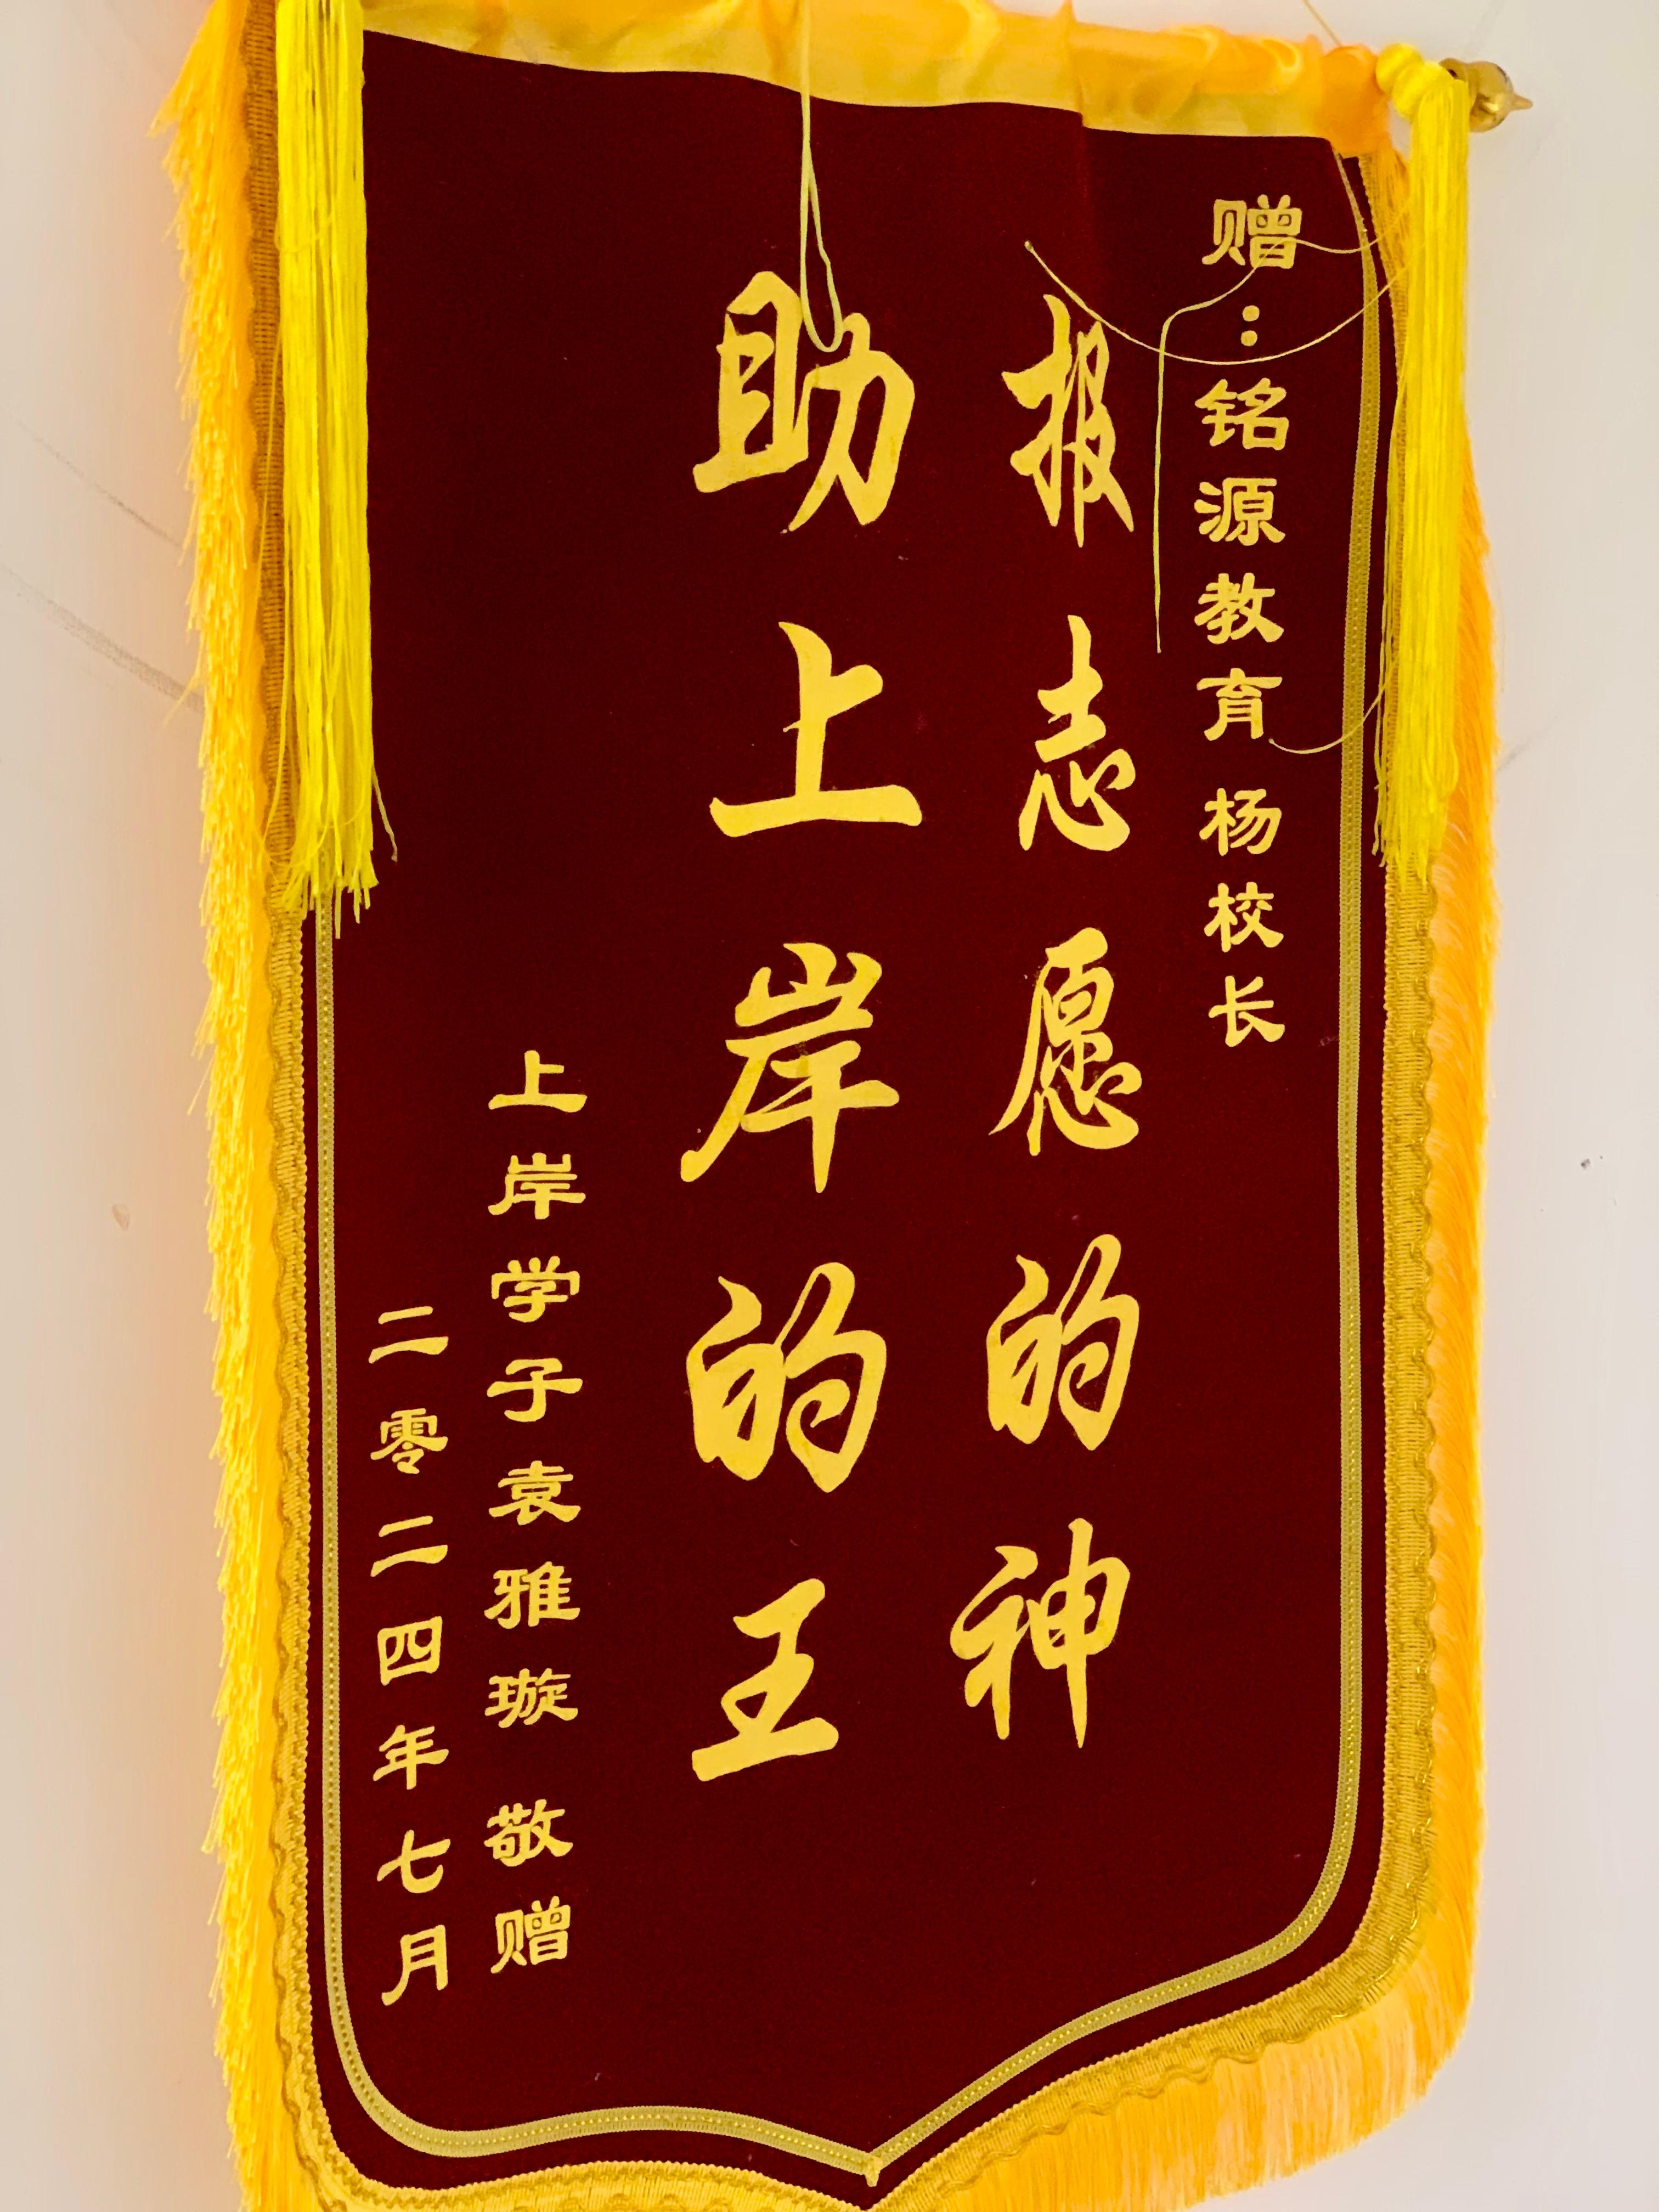 赠：铭源教育 杨校长
报志愿的神
助上岸的王
上岸学子袁雅璇 敬赠
二零二四年七月